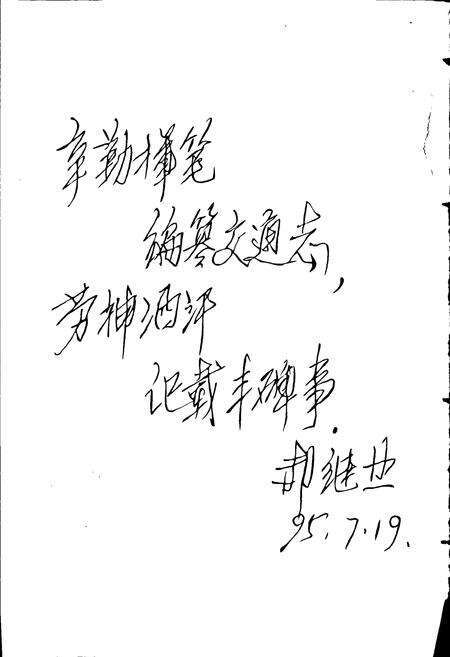 辛勤挥笔
编篡交通志,
劳神洒汗
记载丰碑事.
郝继业
95.7.19.